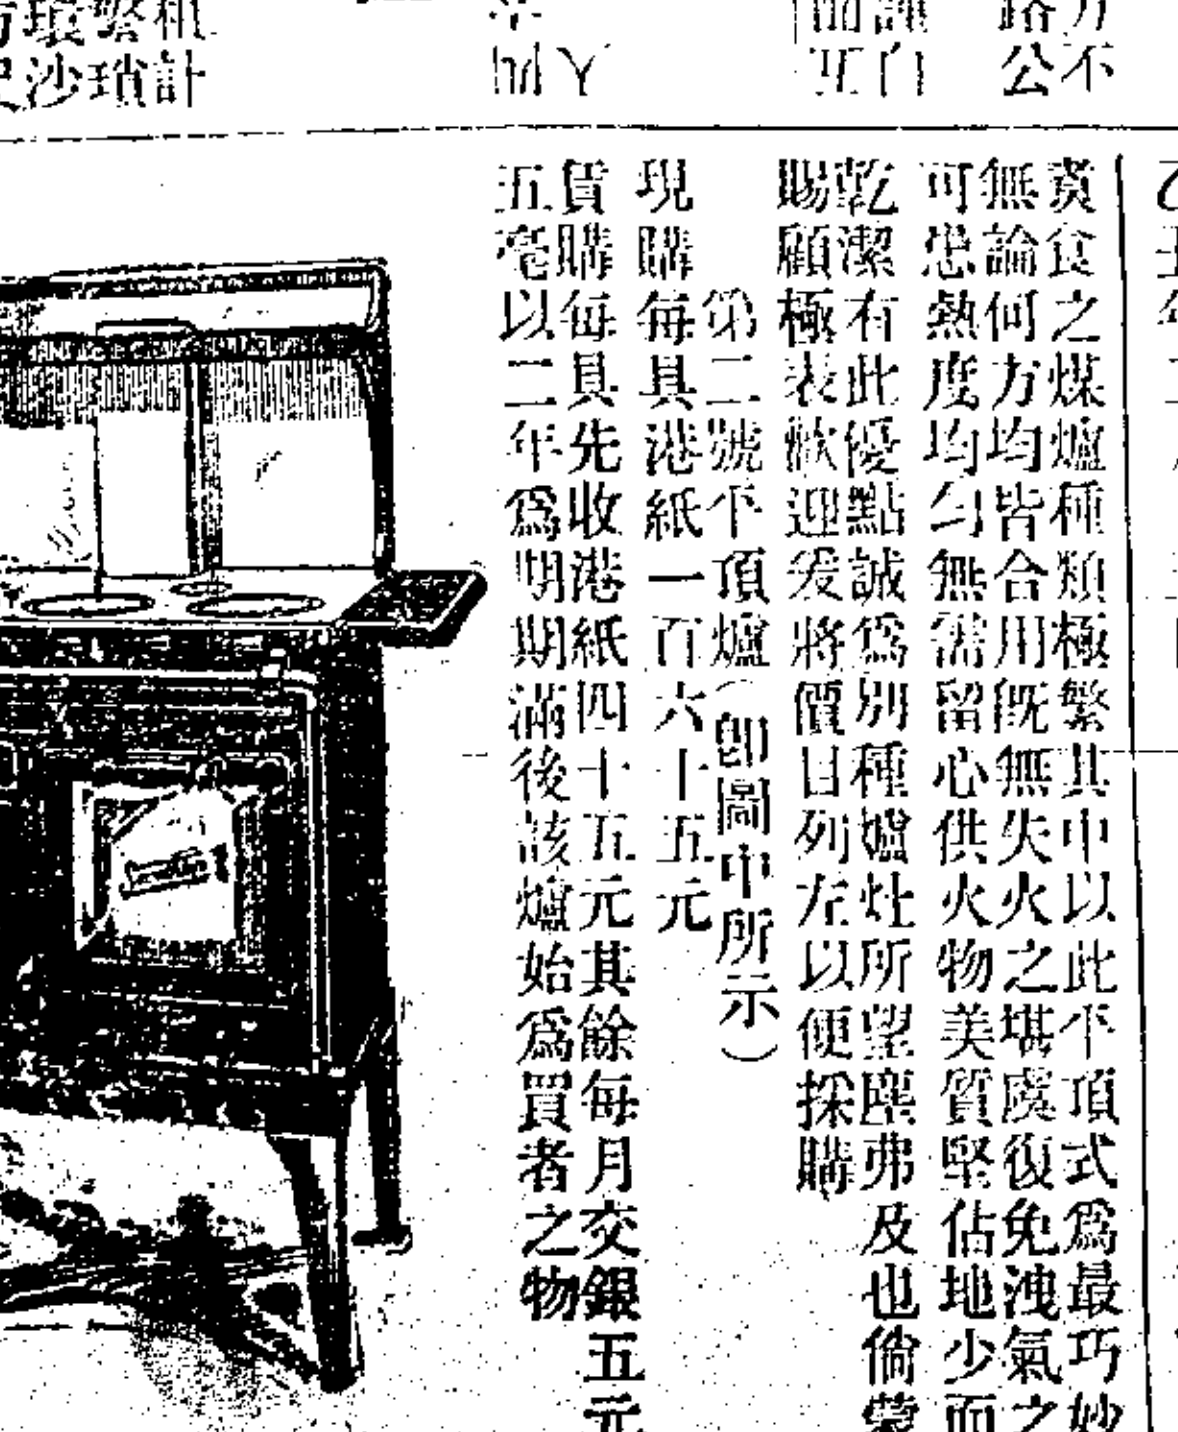 煑食之煤爐種類極繁其中以此平頂式爲最巧妙
無論何方均皆合用既無失火之堪虞復免洩氣之
可患熱度均勻無需留心供火物美質堅佔地少而
乾潔有此優點誠爲別種爐灶所望塵弗及也倘蒙
賜顧極表歡迎爰將價目列左以便採購
第二號平頂爐（卽圖中所示）
現購每具港紙一百六十五元
賃購每具先收港紙四十五元其餘每月交銀五元
五毫以二年爲期期滿後該爐始爲買者之物